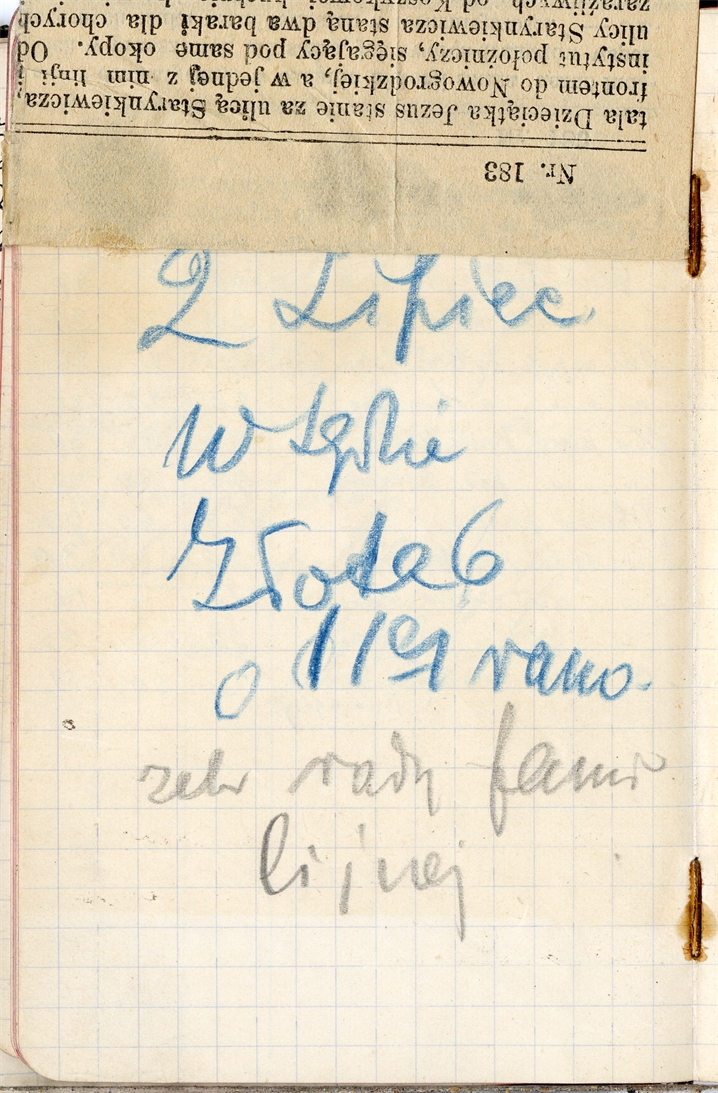 Nr. 183
tala Dzieciątka Jezus stanie za ulicą Starynkiewicza,
frontem do Nowogrodzkiej, a w jednej z nim linji
instytut położniczy, sięgający pod same okopy. Od
ulicy Starynkiewicza staną dwa baraki dla chorych
zaraźliwych od Koszykowej
2 Lipiec
W Sądzie
Złota 6
o 11ej rano.
zebr rady fami
lijnej